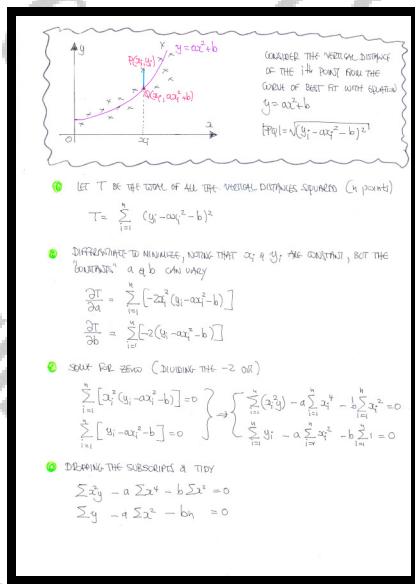 y
y = ax²+b
P(xᵢ,yᵢ)
Q(xᵢ, axᵢ²+b)
x
O
xᵢ
CONSIDER THE VERTICAL DISTANCE
OF THE iᵗʰ POINT FROM THE
CURVE OF BEST FIT WITH EQUATION
y = ax²+b
|PQ| = √(yᵢ - axᵢ² - b)²
LET T BE THE TOTAL OF ALL THE VERTICAL DISTANCES SQUARED (n points)
T = ∑ᵢ₌₁ⁿ (yᵢ - axᵢ² - b)²
DIFFERENTIATE TO MINIMIZE, NOTING THAT xᵢ & yᵢ ARE CONSTANT, BUT THE
"CONSTANTS" a & b CAN VARY
∂T/∂a = ∑ᵢ₌₁ⁿ [-2xᵢ²(yᵢ - axᵢ² - b)]
∂T/∂b = ∑ᵢ₌₁ⁿ [-2(yᵢ - axᵢ² - b)]
SOLVE FOR ZERO (DIVIDING THE -2 OUT)
∑ᵢ₌₁ⁿ [xᵢ²(yᵢ - axᵢ² - b)] = 0 ⇒ ∑ᵢ₌₁ⁿ (xᵢ²y) - a∑ᵢ₌₁ⁿ xᵢ⁴ - b∑ᵢ₌₁ⁿ xᵢ² = 0
∑ᵢ₌₁ⁿ [yᵢ - axᵢ² - b] = 0 ∑ᵢ₌₁ⁿ yᵢ - a∑ᵢ₌₁ⁿ xᵢ² - b∑ᵢ₌₁ⁿ 1 = 0
DROPPING THE SUBSCRIPTS & TIDY
∑x²y - a∑x⁴ - b∑x² = 0
∑y - a∑x² - bn = 0